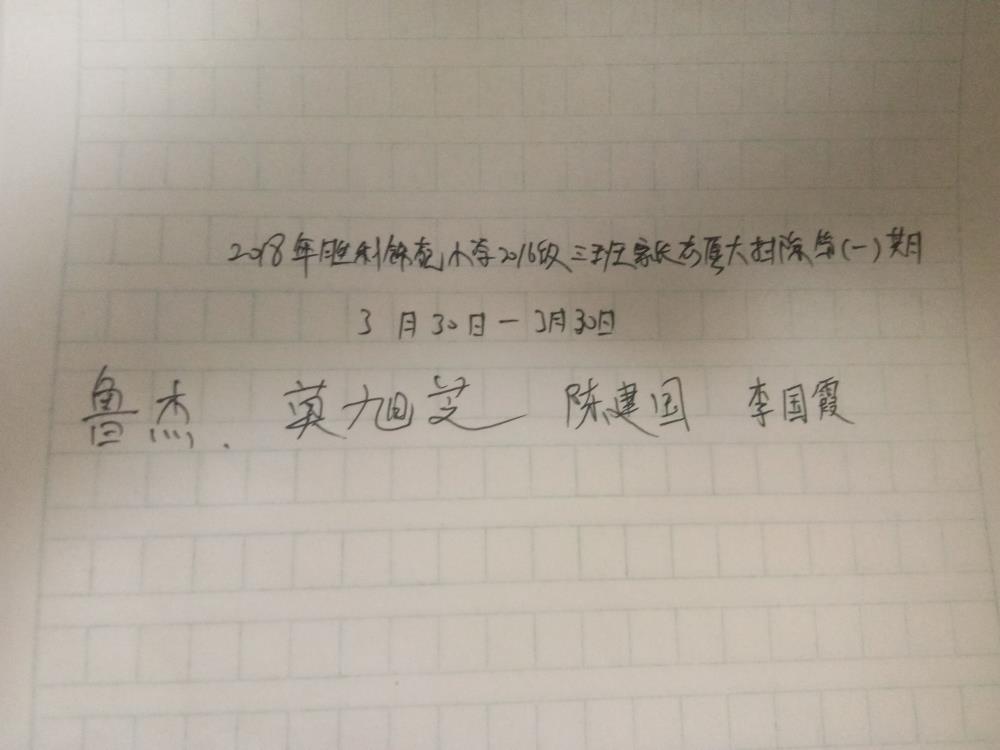 2018年胜利锦苑小学2016级三班家长志愿大扫除第(一)期
3月30日一3月30日
鲁杰. 莫旭芝 陈建国 李国霞